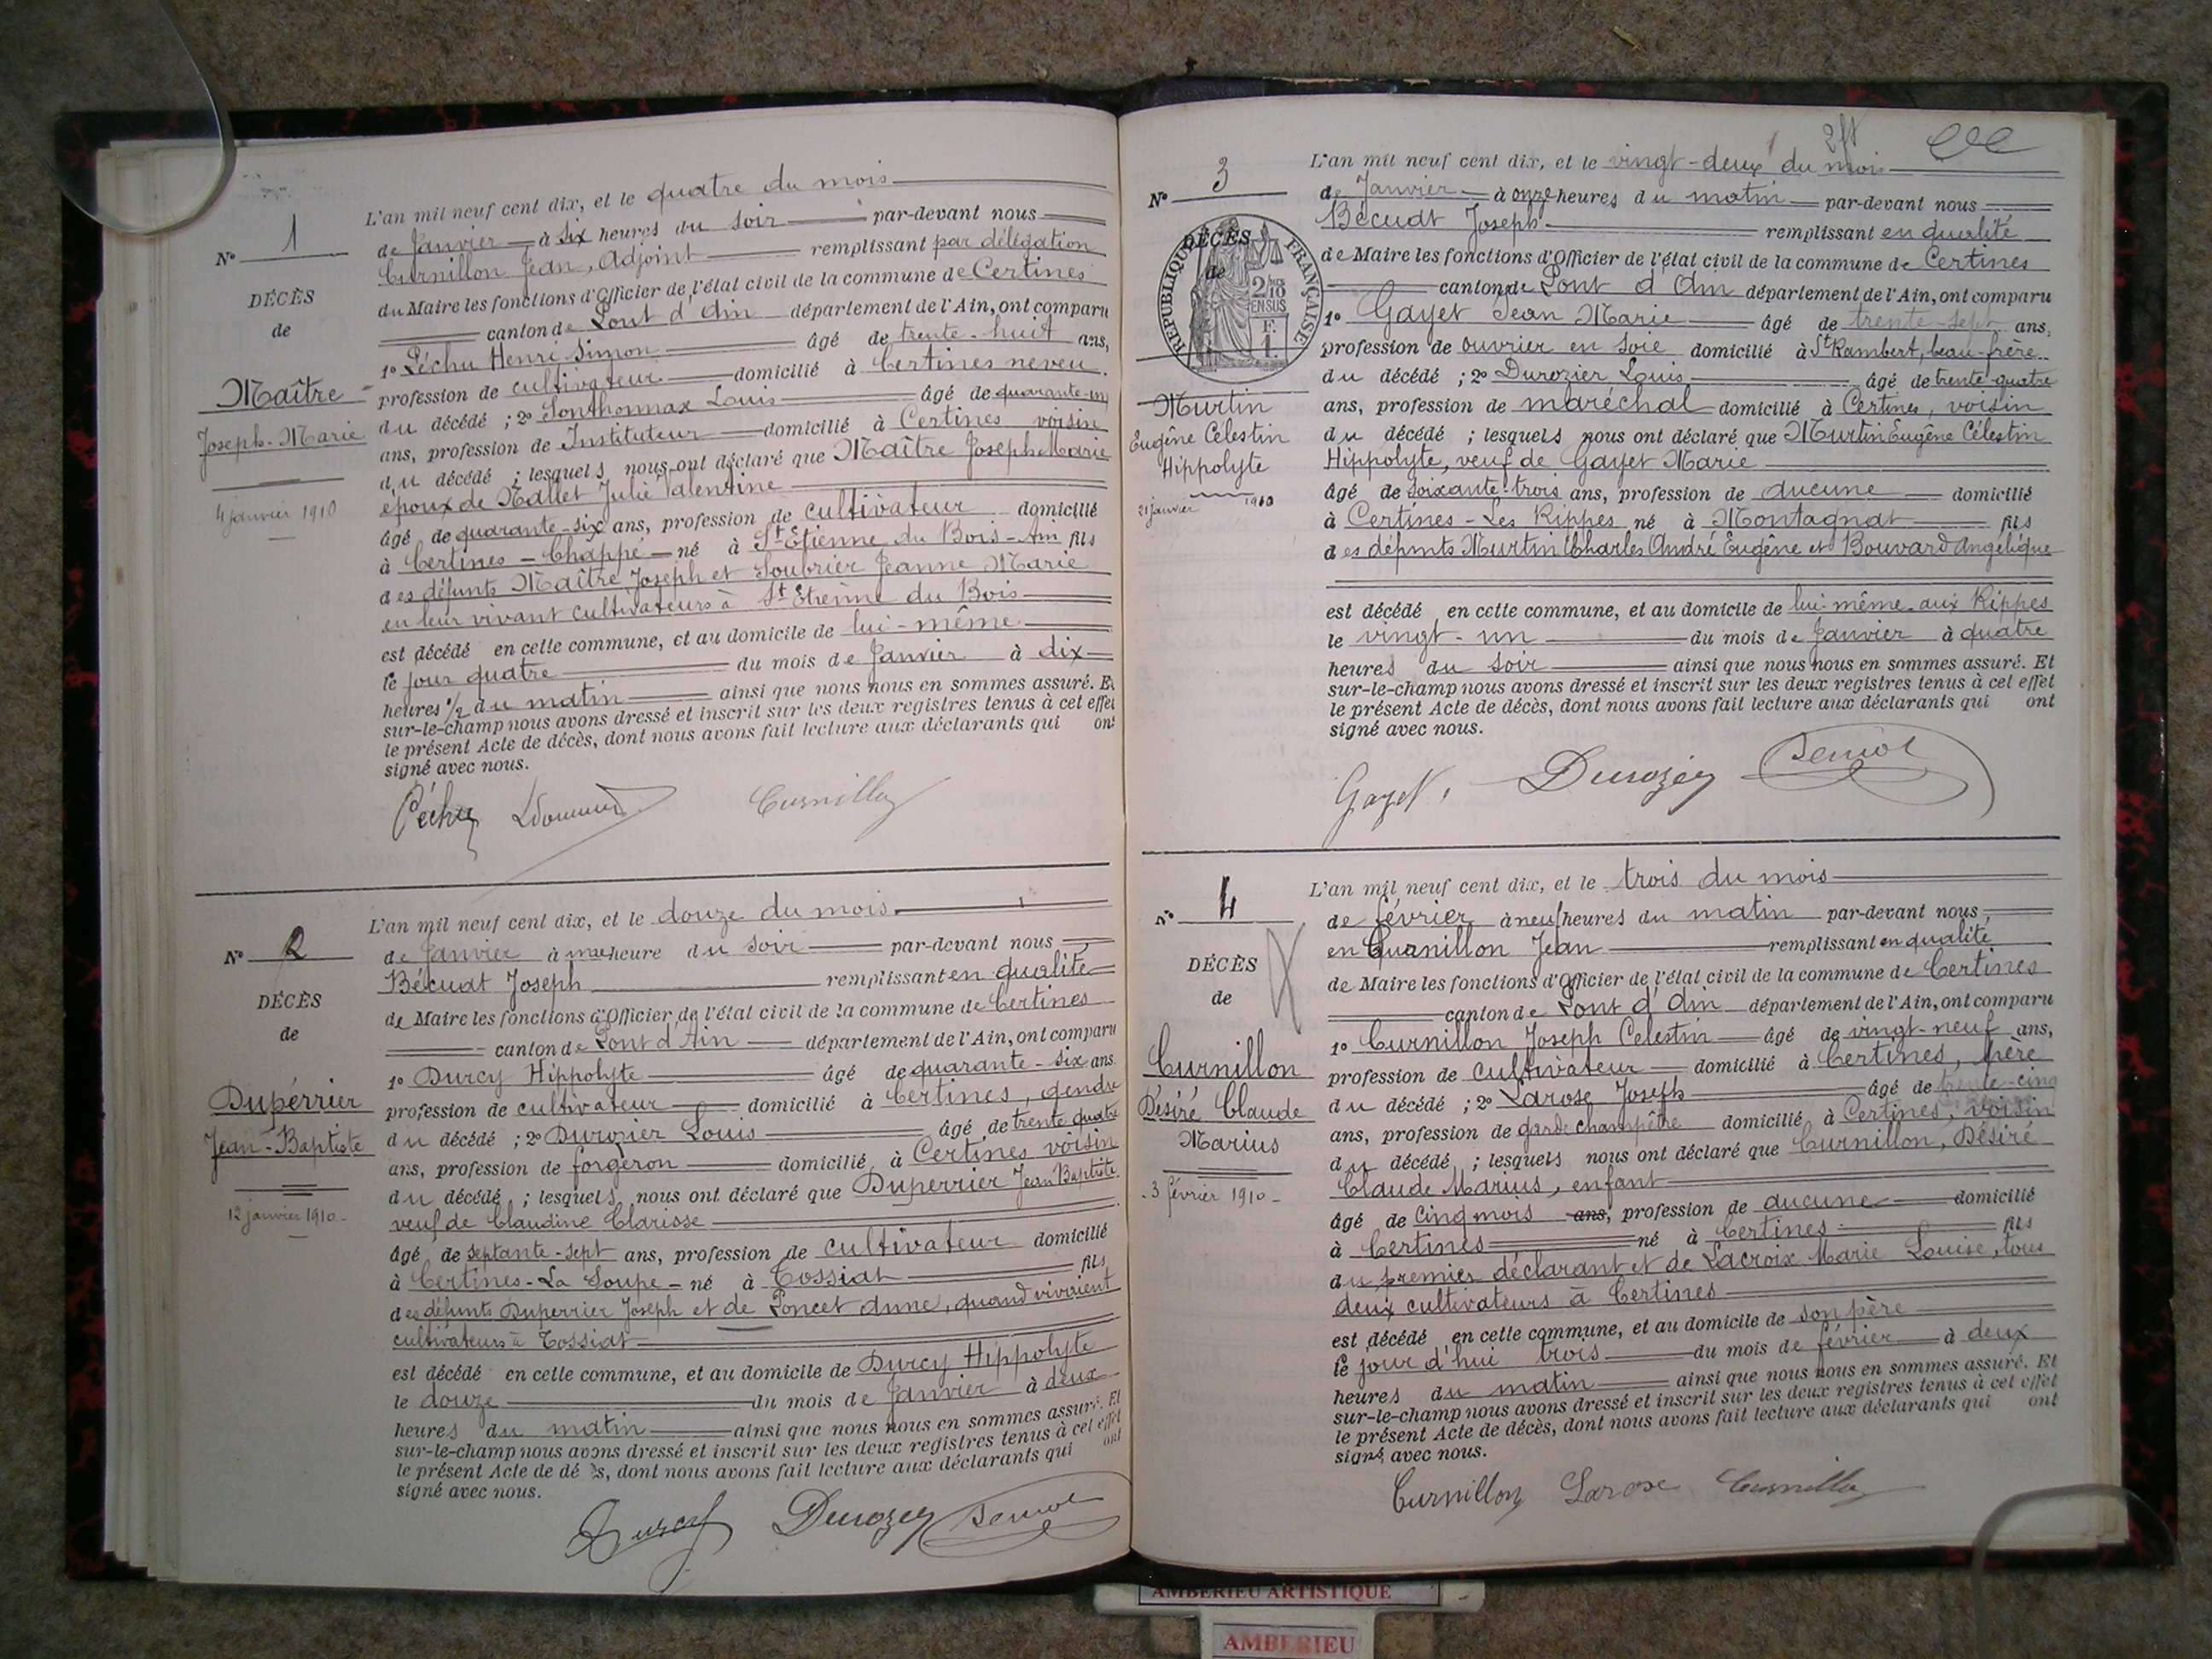 N° 1
DÉCÈS
de
Maître
Joseph-Marie
4 janvier 1910
L'an mil neuf cent dix, et le quatre du mois
de Janvier à six heures du soir par-devant nous
Curnillon Jean, Adjoint remplissant par délégation
du Maire les fonctions d'Officier de l'état civil de la commune de Certines
canton de Pont d'Ain département de l'Ain, ont comparu
1° Péchu Henri Simon âgé de trente-huit ans,
profession de cultivateur domicilié à Certines neveu
du décédé ; 2° Sonthonnax Louis âgé de quarante-un
ans, profession de Instituteur domicilié à Certines voisin
du décédé ; lesquels nous ont déclaré que Maître Joseph Marie
époux de Mallet Julie Valentine
âgé de quarante-six ans, profession de cultivateur domicilié
à Certines - Chappe - né à St Etienne du Bois - Ain fils
des défunts Maître Joseph et Soubrier Jeanne Marie
en leur vivant cultivateurs à St Etienne du Bois
est décédé en cette commune, et au domicile de lui-même
le jour quatre du mois de Janvier à dix
heures 1/2 du matin ainsi que nous nous en sommes assuré. Et
sur-le-champ nous avons dressé et inscrit sur les deux registres tenus à cet effet
le présent Acte de décès, dont nous avons fait lecture aux déclarants qui ont
signé avec nous.
Péchu Curnillon
N° 2
DÉCÈS
de
Dupérrier
Jean-Baptiste
12 janvier 1910
L'an mil neuf cent dix, et le douze du mois
de Janvier à une heure du soir par-devant nous
Bécudt Joseph remplissant en qualité
de Maire les fonctions d'Officier de l'état civil de la commune de Certines
canton de Pont d'Ain département de l'Ain, ont comparu
1° Durcy Hippolyte âgé de quarante-six ans
profession de cultivateur domicilié à Certines, gendre
du décédé ; 2° Durozier Louis âgé de trente quatre
ans, profession de forgeron domicilié à Certines voisin
du décédé ; lesquels nous ont déclaré que Duperrier Jean Baptiste
veuf de Claudine Clarisse
âgé de septante-sept ans, profession de cultivateur domicilié
à Certines - La Soupe - né à Tossiat fils
des défunts Duperrier Joseph et de Poncet Anne, quand vivaient
cultivateurs à Tossiat
est décédé en cette commune, et au domicile de Durcy Hippolyte
le douze du mois de Janvier à deux
heures du matin ainsi que nous nous en sommes assuré. Et
sur-le-champ nous avons dressé et inscrit sur les deux registres tenus à cet effet
le présent Acte de dé s, dont nous avons fait lecture aux déclarants qui ont
signé avec nous.
Durcy Durozey
N° 3
DÉCÈS
de
RÉPUBLIQUE FRANÇAISE
2/10 EN SUS
F. 1.
Murtin
Eugène Célestin
Hippolyte
21 janvier 1910
L'an mil neuf cent dix, et le vingt-deux du mois
de Janvier à onze heures du matin par-devant nous
Bécudt Joseph remplissant en qualité
de Maire les fonctions d'Officier de l'état civil de la commune de Certines
canton de Pont d'Ain département de l'Ain, ont comparu
1° Gayet Jean Marie âgé de trente-sept ans,
profession de ouvrier en soie domicilié à St Rambert, beau-frère
du décédé ; 2° Durozier Louis âgé de trente-quatre
ans, profession de maréchal domicilié à Certines, voisin
du décédé ; lesquels nous ont déclaré que Murtin Eugène Célestin
Hippolyte, veuf de Gayet Marie
âgé de soixante-trois ans, profession de aucune domicilié
à Certines - Les Rippes né à Montagnat fils
des défunts Murtin Charles André Eugène et Bouvard Angélique
est décédé en cette commune, et au domicile de lui-même aux Rippes
le vingt-un du mois de Janvier à quatre
heures du soir ainsi que nous nous en sommes assuré. Et
sur-le-champ nous avons dressé et inscrit sur les deux registres tenus à cet effet
le présent Acte de décès, dont nous avons fait lecture aux déclarants qui ont
signé avec nous.
Gayet Durozey
N° 4
DÉCÈS
de
Curnillon
Désiré Claude
Marius
3 février 1910
L'an mil neuf cent dix, et le trois du mois
de février à neuf heures du matin par-devant nous
en Curnillon Jean remplissant en qualité
de Maire les fonctions d'Officier de l'état civil de la commune de Certines
canton de Pont d'Ain département de l'Ain, ont comparu
1° Curnillon Joseph Celestin âgé de vingt-neuf ans,
profession de cultivateur domicilié à Certines, père
du décédé ; 2° Larose Joseph âgé de trente-cinq
ans, profession de garde champêtre domicilié à Certines, voisin
du décédé ; lesquels nous ont déclaré que Curnillon, Désiré
Claude Marius, enfant
âgé de cinq mois ans, profession de aucune domicilié
à Certines né à Certines fils
du premier déclarant et de Lacroix Marie Louise, tous
deux cultivateurs à Certines
est décédé en cette commune, et au domicile de son père
le jour d'hui trois du mois de février à deux
heures du matin ainsi que nous nous en sommes assuré. Et
sur-le-champ nous avons dressé et inscrit sur les deux registres tenus à cet effet
le présent Acte de décès, dont nous avons fait lecture aux déclarants qui ont
signé avec nous.
Curnillon Larose Curnillon
AMBERIEU ARTISTIQUE
AMBERIEU